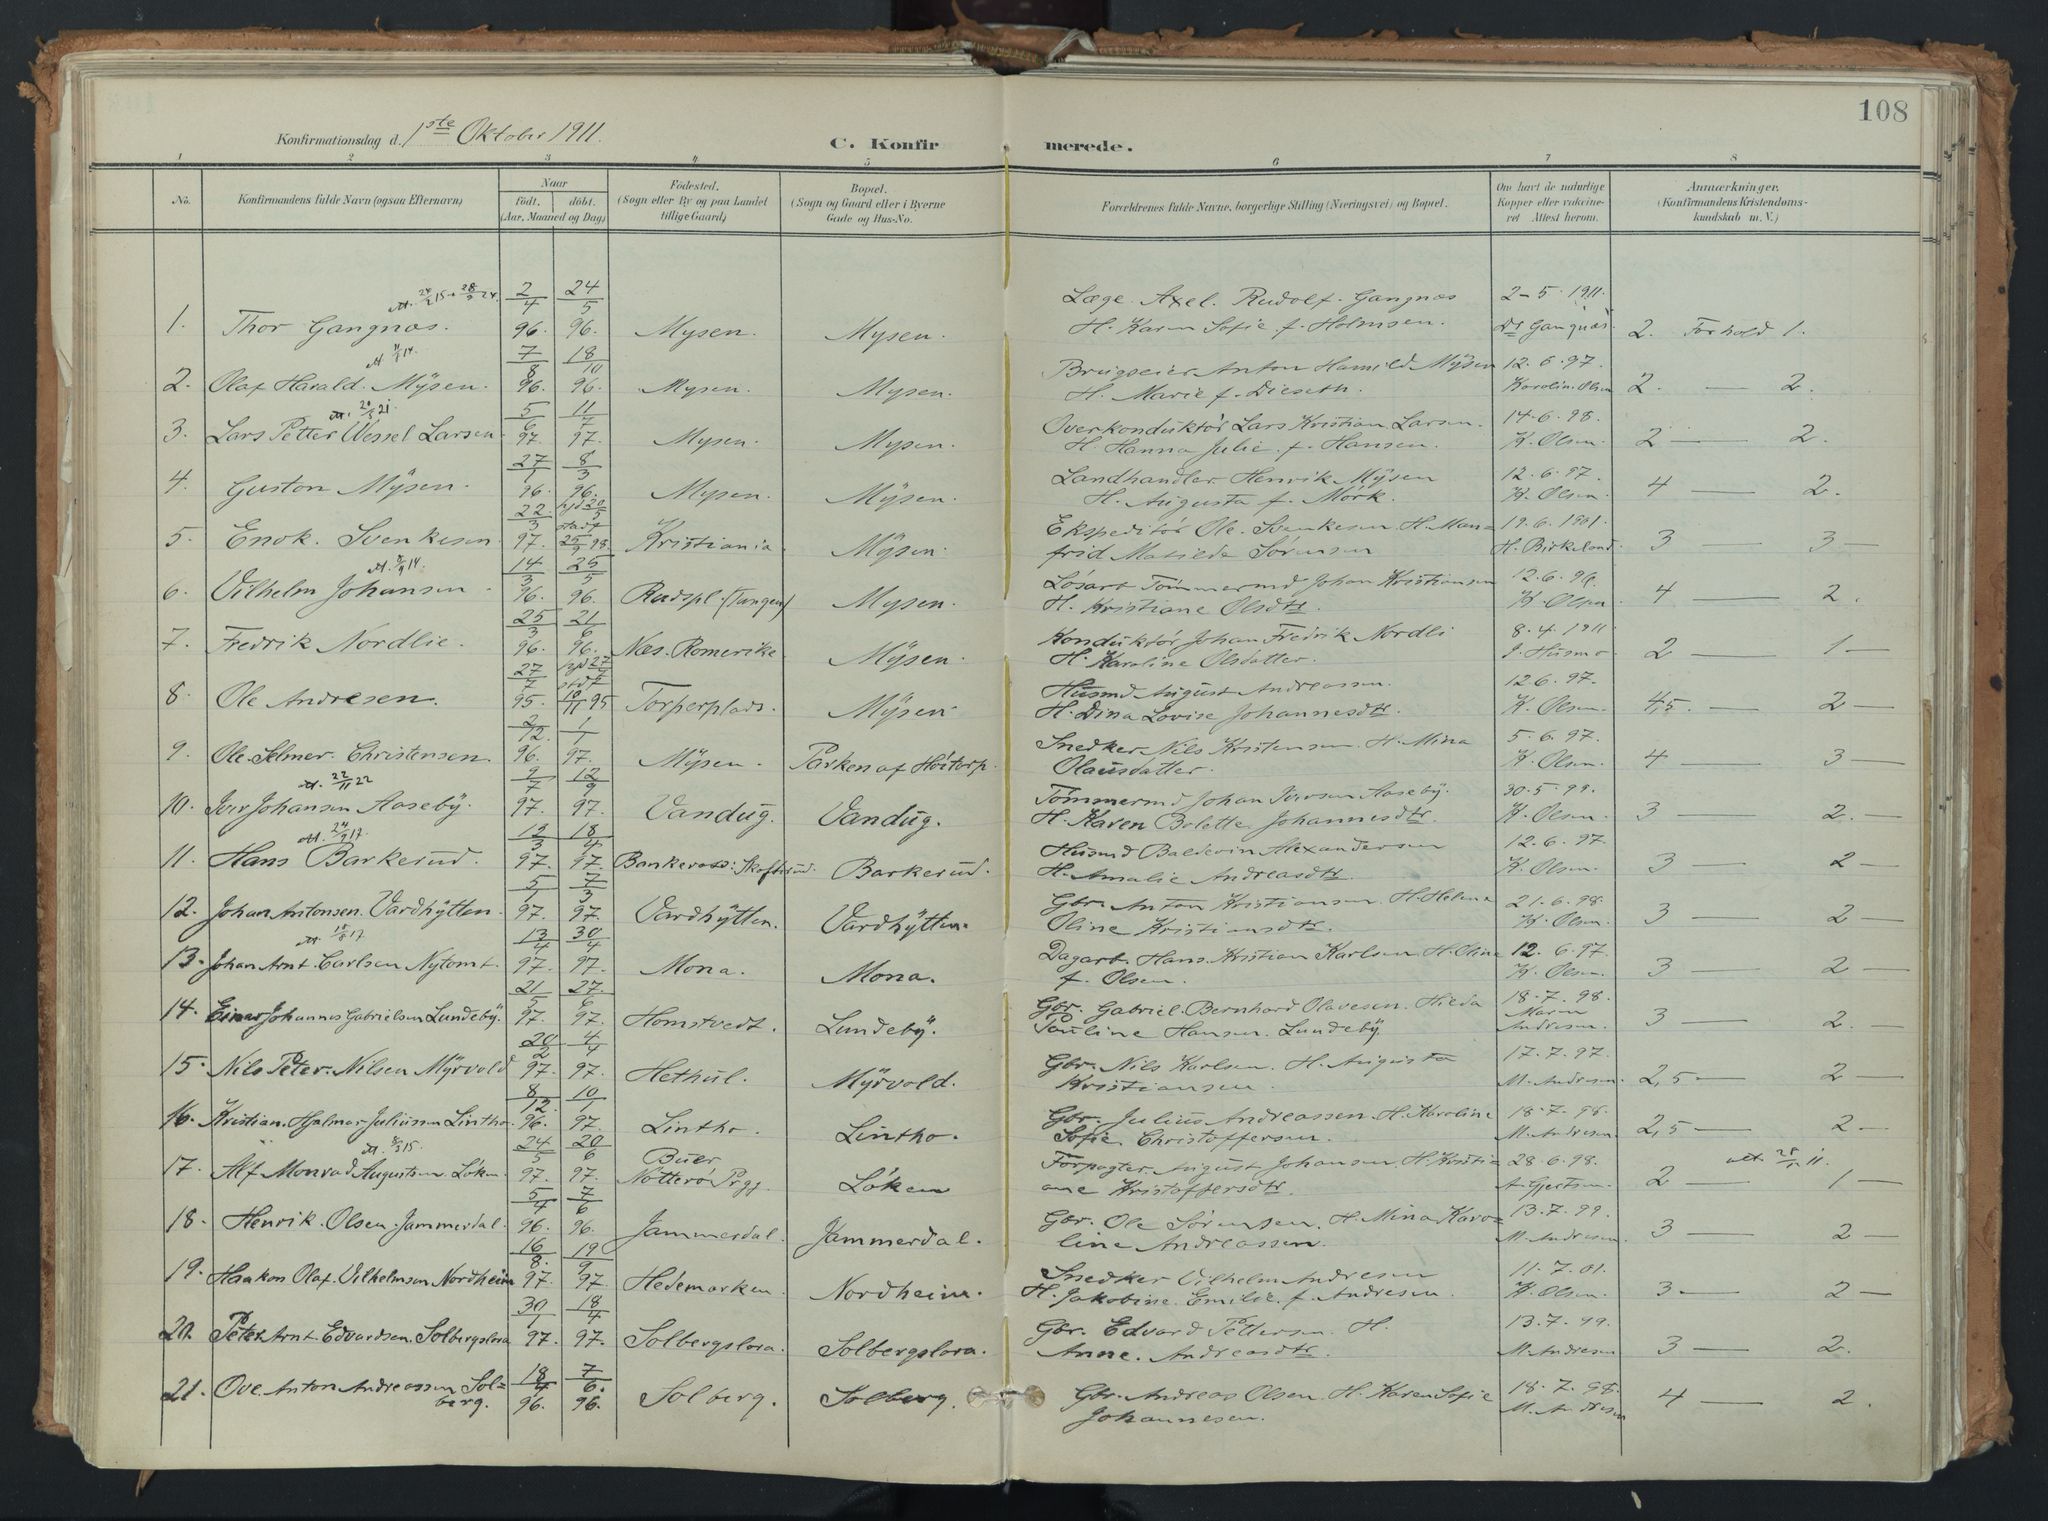 108
Konfirmationsdag d. 1ste Oktober 1911.
C. Konfirmerede.
1 2 3 4 5 6 7 8
No. Konfirmandens fulde Navn (ogsaa Efternavn) Naar født. døbt. (Aar, Maaned og Dag) Fødested. (Sogn eller By og paa Landet tillige Gaard) Bopæl. (Sogn og Gaard eller i Byerne Gade og Hus-No. Forældrenes fulde Navne, borgerlige Stilling (Næringsvei) og Bopæl. Om havt de naturlige Kopper eller vaccineret Attest herom. Anmærkninger. (Konfirmandens Kristendomskundskab m. V.)
2/4 24/5 Læge. Axel. Rudolf. Gangnæs 2-5. 1911.
1. Thor Gangnæs. 96. 96. Mysen. Mysen. H. Karen Sofie f. Holmsen. Dr Gangnæs. 2. Forhold 1.
7/8 18/10 Brugseier Anton Hamild Mÿsen 12.6.97.
2. Olaf Harald. Mÿsen. 96. 96. Mysen. Mysen. H. Marie f. Dieseth. Karolin. Olsen 2. — 2.
5/6 11/7 Overkonduktør Lars Kristian Larsen. 14.6.98.
3. Lars Petter Wessel Larsen. 97. 97. Mysen. Mysen. H. Hanna Julie. f. Hansen. K. Olsen. 2 — 2.
27/1 8/3 Landhandler Henrik Mÿsen 12.6.97.
4. Guston Mÿsen. 96. 96. Mysen. Mÿsen. H. Augusta f. Mörk. K. Olsen. 4 — 2.
22/3 Ekspeditør Ole. Svenkesen. H. Man= 19.6.1901.
5. Enok. Svenkesen 97. 25/9 98. Kristiania. Mÿsen. frid Matilda Sørensen H. Birkeland. 3 — 3 —
14/3 25/5 Løsarb Tømmermd Johan Kristiansen 12.6.96.
6. Vilhelm Johansen 96. 96. Rudspl. (Tangen) Mysen. H. Kristiane Olsdtr. K. Olsen 4 — 2.
25/3 21/6 Konduktør Johan Fredrik Nordli 8.4.1911
7. Fredrik Nordlie. 96. 96. Næs. Romerike Mÿsen. H. Karoline Olsdatter. J. Husmo 2 — 1 —
27/7 Husmd August Andreassen. 12.6.97.
8. Ole Andresen. 95. 10/11 95 Torperplads. Mÿsen. H. Dina Lovise Johannesdtr. K. Olsen. 4,5. — 2 —
2/12. 1/1 Snedker Nils Kristensen. H. Mina 5.6.97.
9. Ole. Selmer. Christensen 96. 97. Mÿsen. Parken af Höitorp. Olausdatter. K. Olsen 4 — 3 —
9/7 12/9 Tømmermd Johan Iversen Aasebÿ. 30.5.99.
10. Iver Johansen Aasebÿ. 97. 97. Vandug. Vandug. H. Karen Bolette Johannesdtr. K. Olsen. 3 — 2. —
13/3 18/4 Husmd Baldevin Alexandersen 12.6.97.
11. Hans Barkerud. 97. 97. Barkerud. H. Amalie Andreasdtr. K. Olsen. 3 — 2 —
5/1 7/3 Gbr. Anton Kristiansen. H. Helene 21.6.98.
12. Johan Antonsen. Vardhÿtten. 97. 97. Vardhÿtten. Vardhÿtten. Oline Kristiansdtr. K. Olsen. 3 — 2 —
13/4 30/4 Dagarb. Hans. Kristian Karlsen. H. Oline 12.6.97.
13. Johan Arnt. Carlsen Nytomt. 97. 97. Mona. Mona. f. Olsen. K. Olsen. 3 — 2 —
21/5 27/6 Gbr. Gabriel. Bernhard Olavesen. Hilda 18.7.98.
14. Einar Johannes Gabrielsen Lundebÿ. 97. 97. Homstvedt. Lundebÿ. Pauline Hansen. Lundebÿ. Maren Andresen. 3 — 2. —
20/2 4/4 Gbr. Nils Karlsen. H. Augusta 17.7.97.
15. Nils Peter. Nilsen Mÿrvold 97. 97. Hethul. Mÿrvold. Kristiansen. M. Andresen. 2,5 — 2 —
8/12. 10/1 Gbr. Julius Andreassen. H. Karoline 18.7.98.
16. Kristian. Hjalmar Juliussen Lintho. 96. 97. Lintho. Lintho. Sofie. Christoffersen. M. Andresen. 2,5 — 2 —
24/5 20/6 Buer Forpagter August Johansen. H. Kristi= 28.6.98.
17. Alf Monrad Augustsen Löken. 97. 97. Nötterö Prgj. Löken ane Kristoffersdtr. A. Gjertsen. 2 — 1 —
5/4 7/6 Gbr. Ole Sørensen. H. Mina Karo= 13.7.99.
18. Henrik. Olsen. Jammerdal. 96. 96. Jammerdal. Jammerdal. line Andreassen. M. Andresen. 3 — 2 —
16/8. 19/9 Snedker Vilhelm Andresen 11.7.01.
19. Haakon Olaf Vilhelmsen Nordheim 97. 97. Hedemarken. Nordheim. H. Jakobine. Emilie. f. Andresen. K. Olsen. 3 — 2 —
30/1 18/4 Gbr. Edvard Pettersen. H 13.7.99.
20. Peter Arnt. Edvardsen. Solbergslora 97. 97. Solbergslora. Solbergslora. Anne. Andreasdtr. M. Andresen 3 — 2.
18/4 7/6. Gbr. Andreas Olsen. H. Karen Sofie 18.7.98.
21. Ove Anton Andreassen Sol= berg. 96. 96. Solberg. Solberg. Johannesen. M. Andresen 4 — 2.